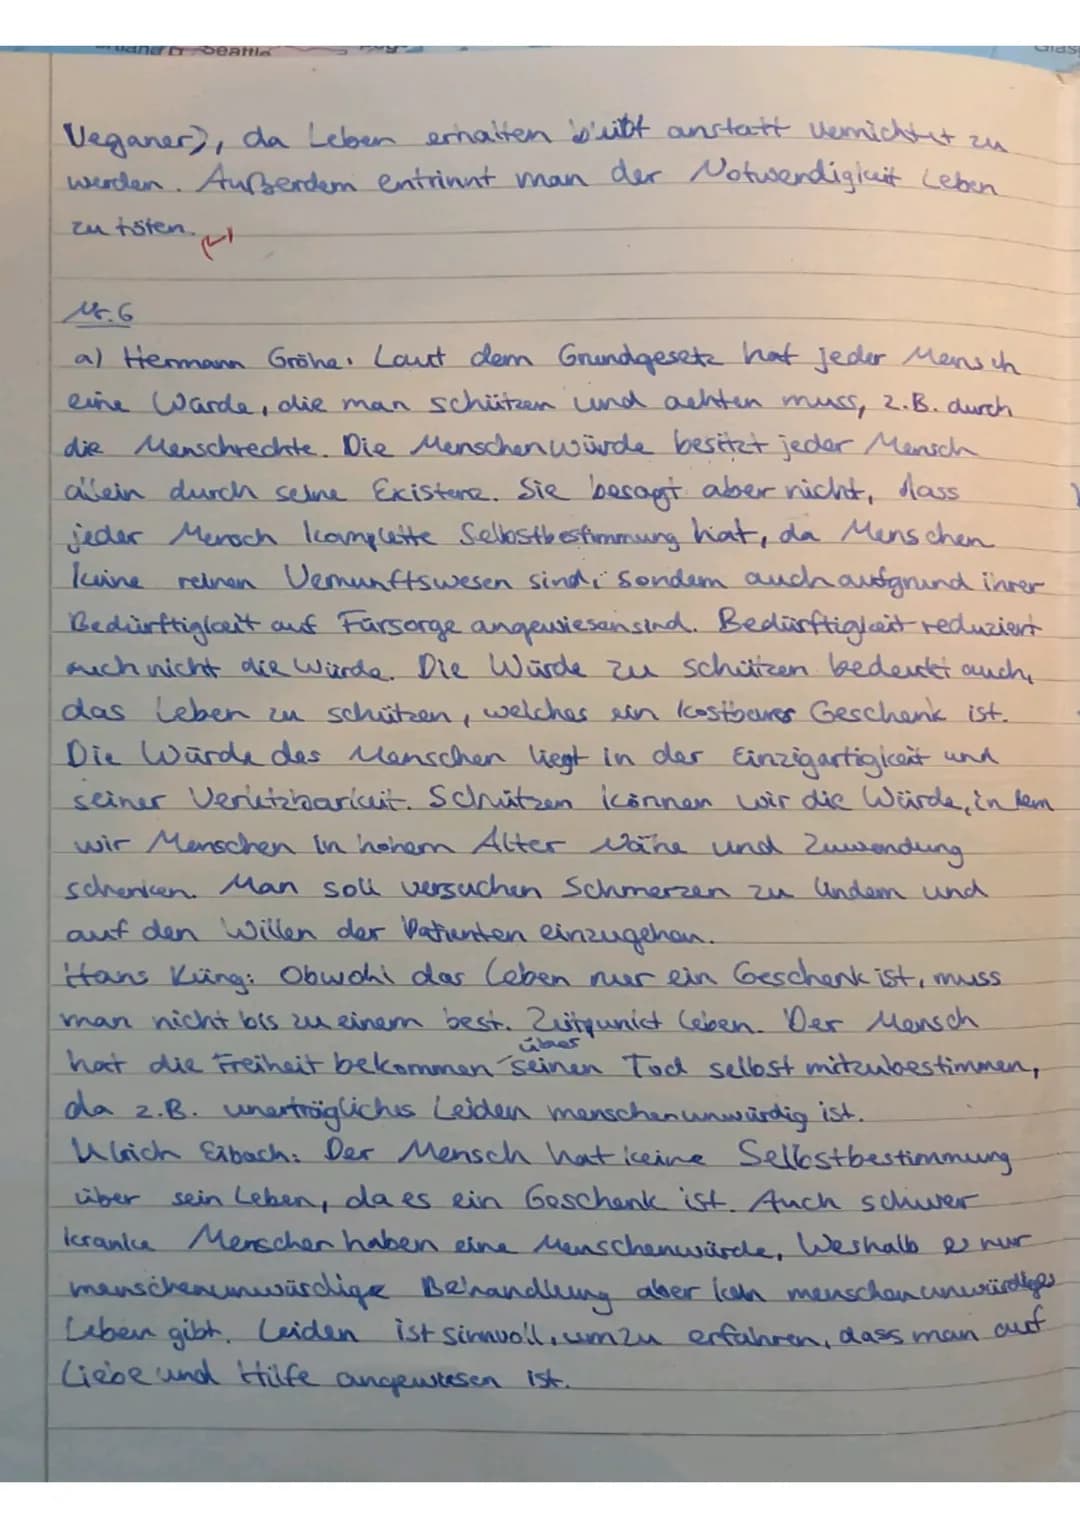 Seattle
Veganer), da Leben erhalten bleibt anstatt vernichtet zu
werden. Außerdem entrinnt man der Notwendigkeit Leben
zu töten.
Nr. 6
a) Hermann Gröhe: Laut dem Grundgesetz hat jeder Mensch
eine Würde, die man schützen und achten muss, z.B. durch
die Menschrechte. Die Menschenwürde besitzt jeder Mensch
allein durch seine Existenz. Sie besagt aber nicht, dass
jeder Mensch komplette Selbstbestimmung hat, da Menschen
keine reinen Vernunftswesen sind, sondern auch aufgrund ihrer
Bedürftigkeit auf Fürsorge angewiesen sind. Bedürftigkeit reduziert
auch nicht die Würde. Die Würde zu schützen bedeutet auch,
das Leben zu schützen, welches ein kostbares Geschenk ist.
Die Würde des Menschen liegt in der Einzigartigkeit und
seiner Verletzbarkeit. Schützen können wir die Würde, in dem
wir Menschen in hohem Alter Nähe und Zuwendung
schenken. Man soll versuchen Schmerzen zu lindern und
auf den Willen der Patienten einzugehen.
Hans Küng: Obwohl das Leben nur ein Geschenk ist, muss
man nicht bis zu einem best. Zeitpunkt leben. Der Mensch
hat die Freiheit bekommen über seinen Tod selbst mitzubestimmen,
da z.B. unerträgliches Leiden menschenunwürdig ist.
Ulrich Eibach: Der Mensch hat keine Selbstbestimmung
über sein Leben, da es ein Geschenk ist. Auch schwer
kranke Menschen haben eine Menschenwürde, Weshalb es nur
menschenunwürdige Behandlung aber kein menschenunwürdiges
Leben gibt. Leiden ist sinnvoll, um zu erfahren, dass man auf
Liebe und Hilfe angewiesen ist.